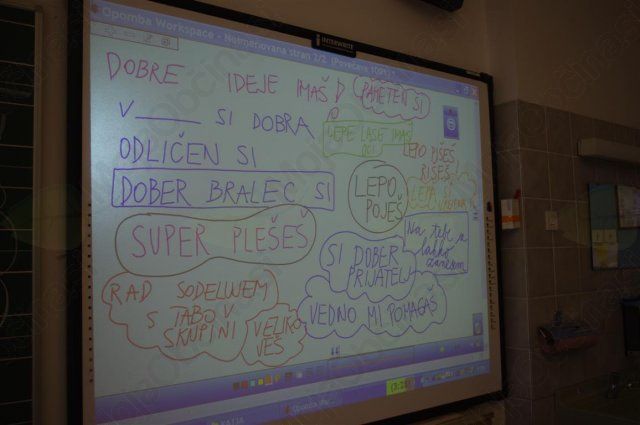 Opomba Workspace - Neimenovana stran 2/2
INTERWRITE
DOBRE IDEJE IMAŠ
PAMETEN SI
V ____ SI DOBRA
LEPE LASE IMAŠ
ODLIČEN SI
LEPO PIŠEŠ
RIŠEŠ
DOBER BRALEC SI
LEPO
POJEŠ
LEPA SI
SUPER PLEŠEŠ
Na tebe se
lahko
zanesem
SI DOBER
PRIJATELJ
RAD SODELUJEM
S TABO V
SKUPINI
VELIKO
VEŠ
VEDNO MI POMAGAŠ